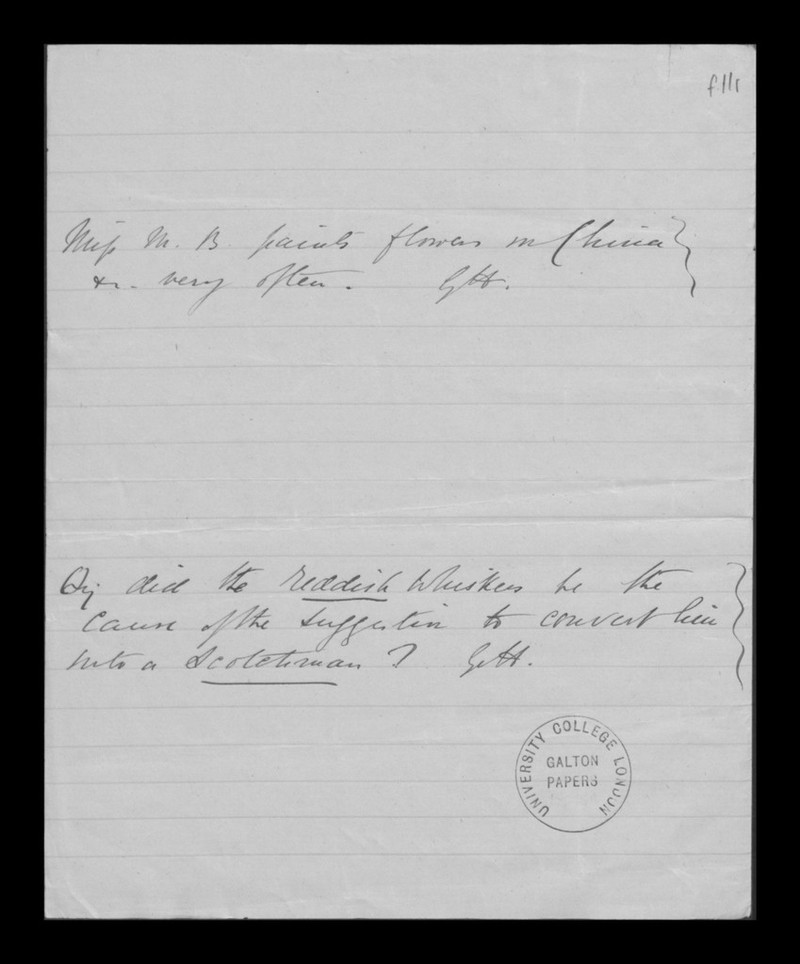 f11r
Miss M. B. paints flowers on China
&c. very often. GH.
Qy did the reddish whiskers be the
cause of the suggestion to convert him
into a Scotchman? GH.
UNIVERSITY COLLEGE LONDON
GALTON
PAPERS